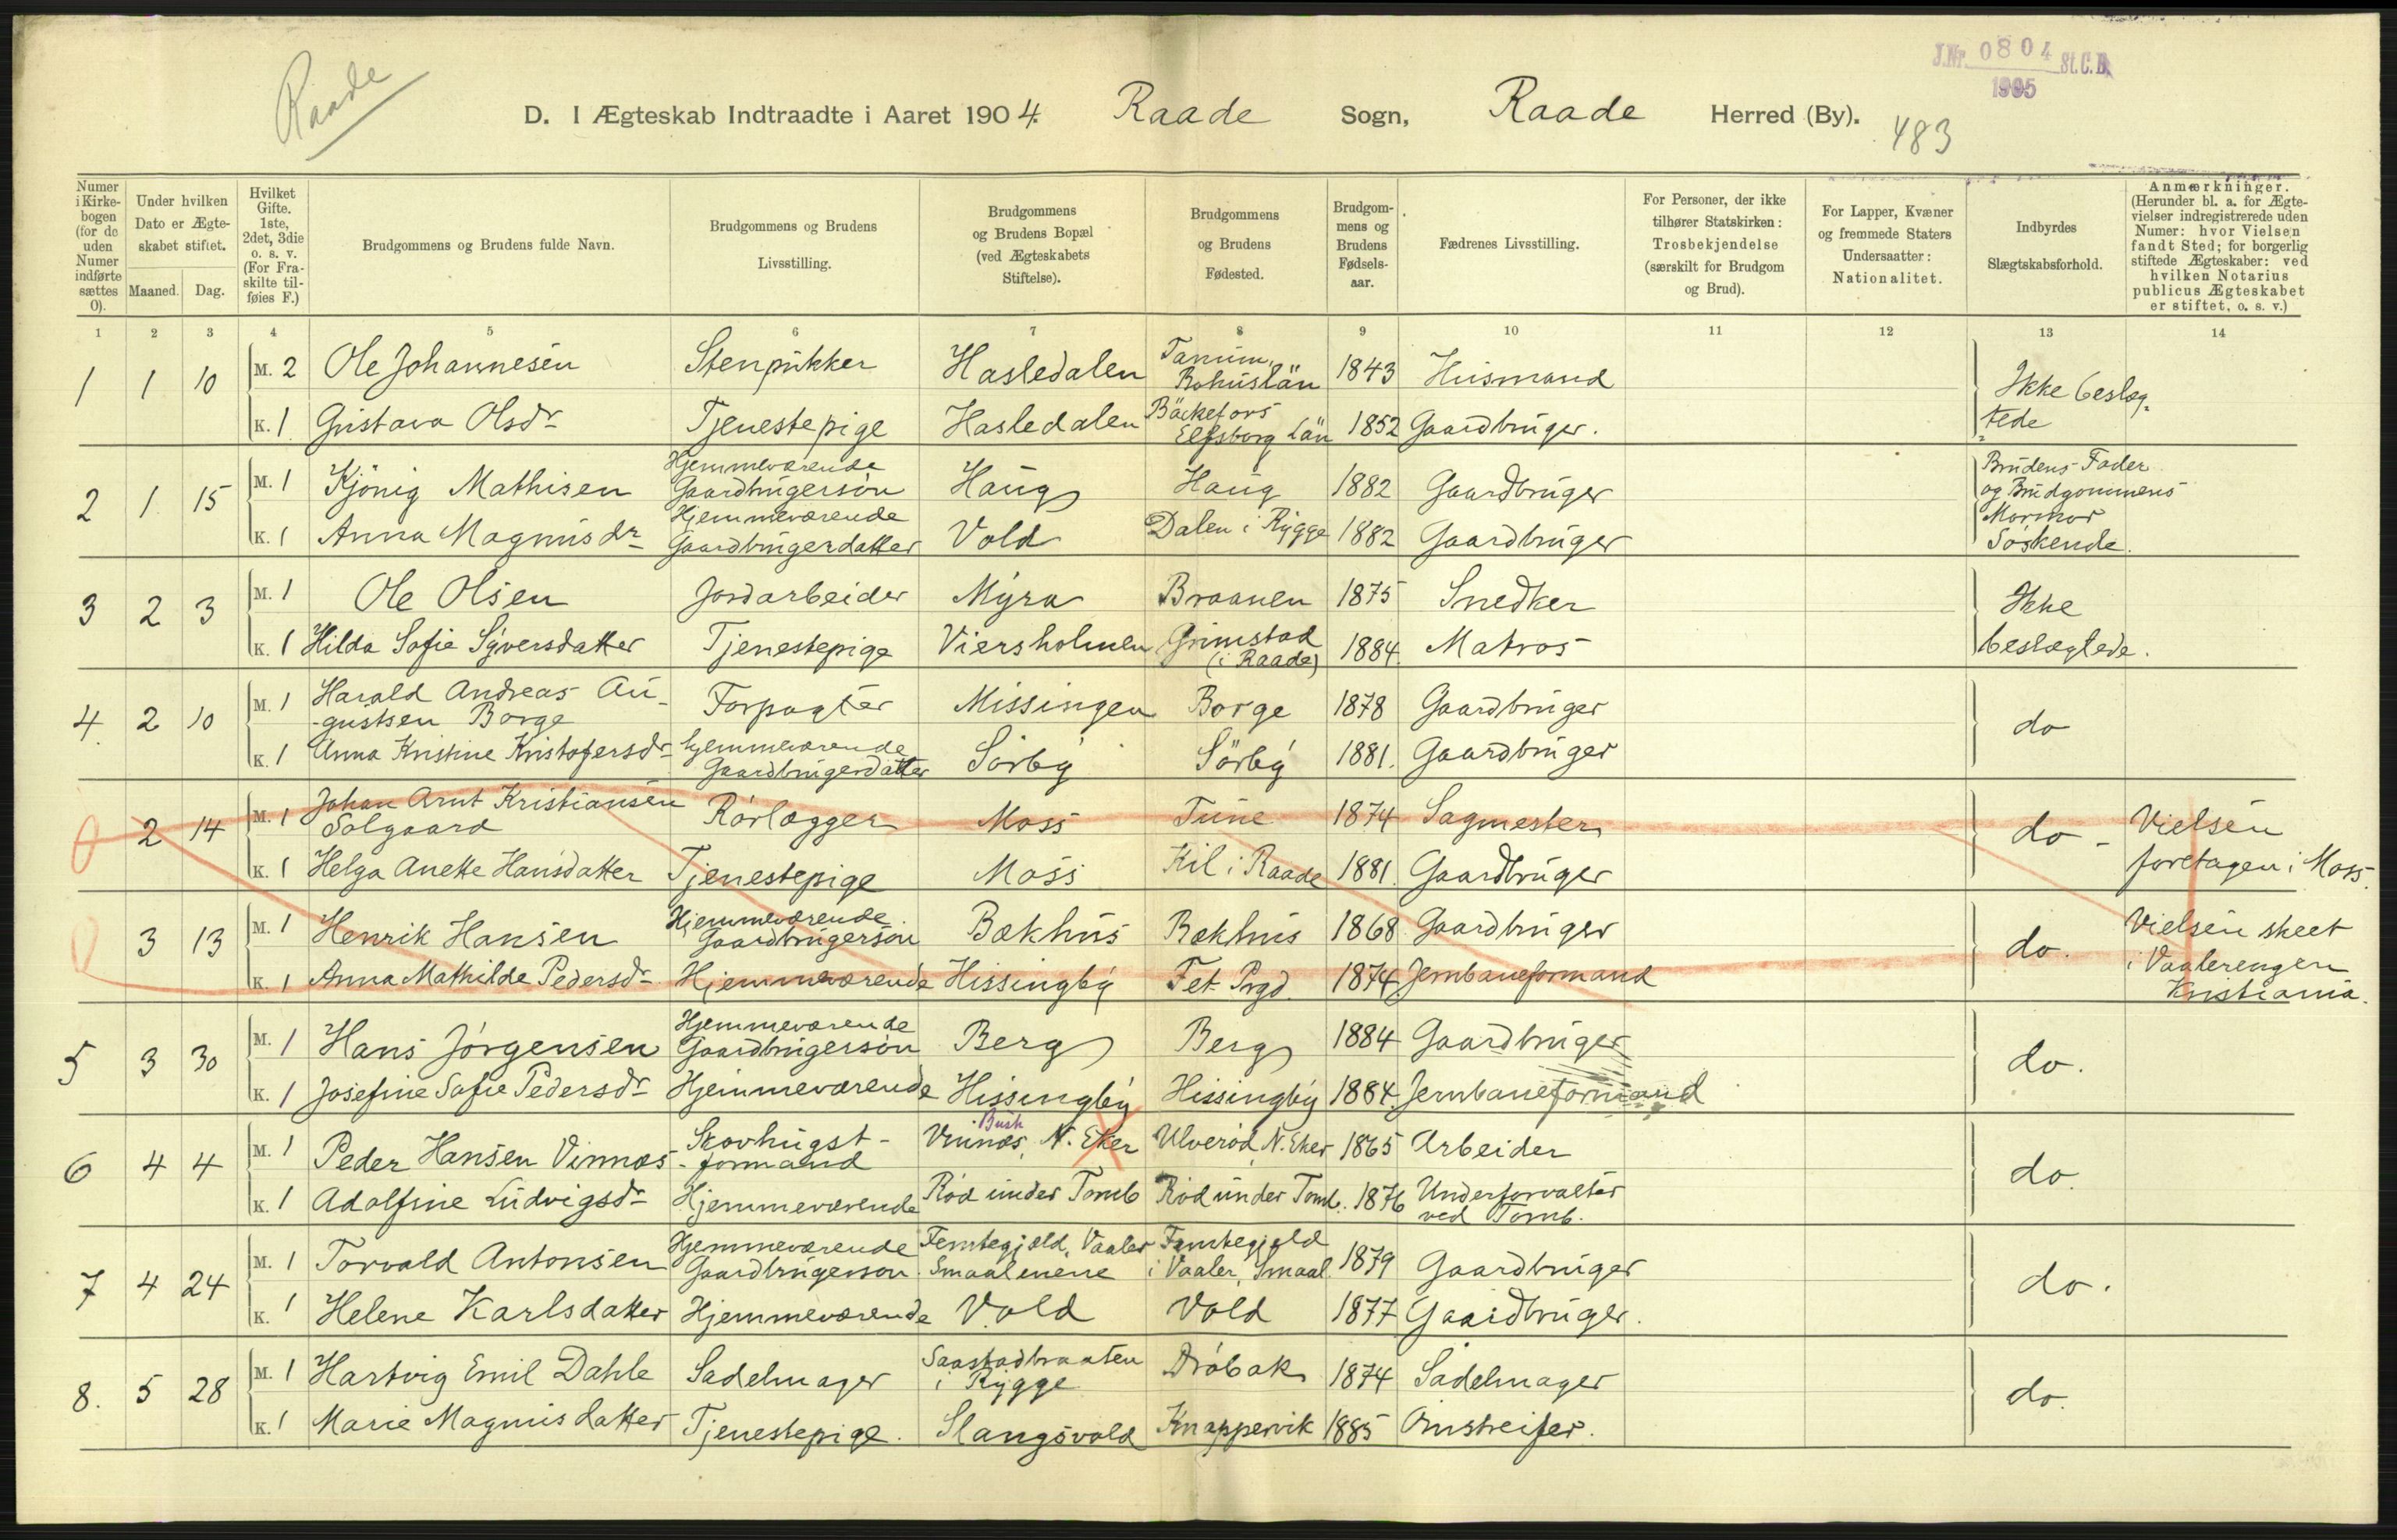 Raade
J.Nr. 0804 St.C.B.
1905
D. I Ægteskab Indtraadte i Aaret 1904. Raade Sogn, Raade Herred (By).
483
Numer i Kirkebogen (for de uden Numer indførte sættes 0).
Under hvilken Dato er Ægteskabet stiftet.
Maaned. Dag.
Hvilket Gifte. 1ste, 2det, 3die o. s. v. (For Fraskilte tilføies F.)
Brudgommens og Brudens fulde Navn.
Brudgommens og Brudens Livsstilling.
Brudgommens og Brudens Bopæl (ved Ægteskabets Stiftelse).
Brudgommens og Brudens Fødested.
Brudgommens og Brudens Fødselsaar.
Fædrenes Livsstilling.
For Personer, der ikke tilhører Statskirken: Trosbekjendelse (særskilt for Brudgom og Brud).
For Lapper, Kvæner og fremmede Staters Undersaatter: Nationalitet.
Indbyrdes Slægtskabsforhold.
Anmærkninger. (Herunder bl. a. for Ægtevielser indregistrerede uden Numer: hvor Vielsen fandt Sted; for borgerlig stiftede Ægteskaber: ved hvilken Notarius publicus Ægteskabet er stiftet, o. s. v.)
1 2 3 4 5 6 7 8 9 10 11 12 13 14
1 1 10 M. 2 Ole Johannesen Stenpukker Hasledalen Tanum, Bohuslän 1843 Husmand Ikke beslæg-
K. 1 Gustava Olsdr Tjenestepige Hasledalen Bäckefors Elfsborg Län 1852 Gaardbruger. tede
2 1 15 M. 1 Kjönig Mathisen Hjemmeværende Gaardbrugersøn Haug Haug 1882 Gaardbruger Brudens Fader og Brudgommens
K. 1 Anna Magnusdr Hjemmeværende Gaardbrugerdatter Vold Dalen i Rygge 1882 Gaardbruger Mormor Søskende.
3 2 3 M. 1 Ole Olsen Jordarbeider Myra Braanen 1875 Snedker Ikke
K. 1 Hilda Sofie Syversdatter Tjenestepige Viersholmen Grimstad (i Raade) 1884. Matros beslægtede.
4. 2 10 M. 1 Harald Andreas Au-
gustsen Borge Forpagter Missingen Borge 1878 Gaardbruger do
K. 1 Anna Kristine Kristofersdr hjemmeværende Gaardbrugerdatter Sörby Sörby 1881. Gaardbruger
0 2 14 M. 1 Johan Arnt Kristiansen
Solgaard Rörlægger Moss Tune 1874 Sagmester do - Vielsen
K. 1 Helga Anette Hansdatter Tjenestepige Moss Kil i Raade 1881. Gaardbruger foretagen i Moss.
0 3 13 M. 1 Henrik Hansen Hjemmeværende Gaardbrugersøn Bækhus Bækhus 1868 Gaardbruger do. Vielsen skeet
K. 1 Anna Mathilde Pedersdr Hjemmeværende Hissingby Fet Prgd. 1874 Jernbaneformand i Vaalerengen
Kristiania.
5 3 30 M. 1 Hans Jörgensen Hjemmeværende Gaardbrugersøn Berg Berg 1884 Gaardbruger do.
K. 1 Josefine Sofie Pedersdr Hjemmeværende Hissingby Hissingby 1884 Jernbaneformand
Busk
6 4 4 M. 1 Peder Hansen Vinnæs Skovhugst-formand Vinnæs, N. Eker Ulveröd, N. Eker 1865 Arbeider do.
K. 1 Adolfine Ludvigsdr Hjemmeværende Röd under Tomb Röd under Tomb. 1876 Underforvalter
ved Tomb.
7 4 24 M. 1 Torvald Antonsen Hjemmeværende Gaardbrugersøn. Femtegjæld, Vaaler Smaalenene Femtegjæld i Vaaler, Smaal. 1879 Gaardbruger do.
K. 1 Helene Karlsdatter Hjemmeværende Vold Vold 1877 Gaardbruger.
8. 5 28 M. 1 Hartvig Emil Dahle Sadelmager Saastadbraaten i Rygge Dröbak 1874 Sadelmager do.
K. 1 Marie Magnusdatter Tjenestepige. Slangsvold Knappervik 1885 Omstreifer.